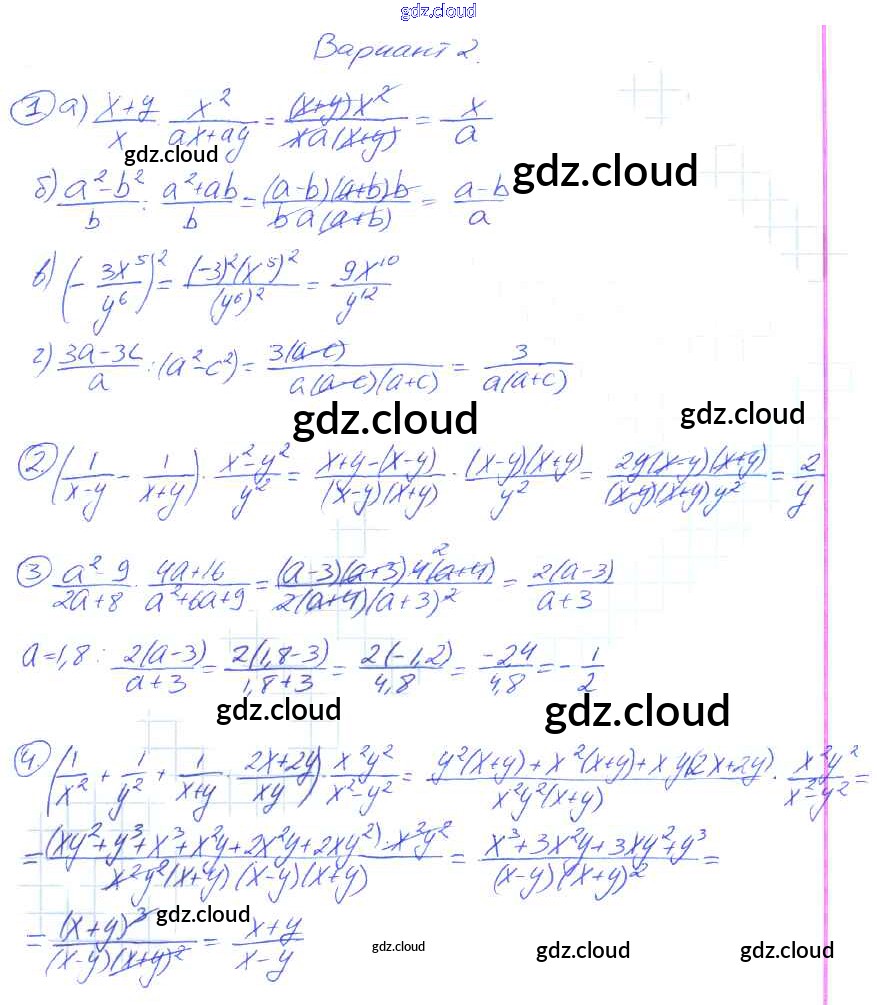 gdz.cloud
Вариант 2.
① а) (x+y)/x · x²/(ax+ay) = (x+y)x²/(xa(x+y)) = x/a
gdz.cloud
gdz.cloud
б) (a²-b²)/b : (a²+ab)/b = (a-b)(a+b)b/(ba(a+b)) = (a-b)/a
в) (-3x⁵/y⁶)² = (-3)²(x⁵)²/(y⁶)² = 9x¹⁰/y¹²
г) (3a-3c)/a : (a²-c²) = 3(a-c)/(a(a-c)(a+c)) = 3/(a(a+c))
gdz.cloud gdz.cloud
② (1/(x-y) - 1/(x+y)) · (x²-y²)/y² = (x+y-(x-y))/((x-y)(x+y)) · (x-y)(x+y)/y² = 2y(x-y)(x+y)/((x-y)(x+y)y²) = 2/y
③ (a²-9)/(2a+8) · (4a+16)/(a²+6a+9) = (a-3)(a+3)·4(a+4)/(2(a+4)(a+3)²) = 2(a-3)/(a+3)
a=1,8: 2(a-3)/(a+3) = 2(1,8-3)/(1,8+3) = 2(-1,2)/4,8 = -2,4/4,8 = -1/2
gdz.cloud gdz.cloud
④ (1/x² + 1/y² + 1/(x+y) · (2x+2y)/xy) · x²y²/(x²-y²) = (y²(x+y)+x²(x+y)+xy(2x+2y))/(x²y²(x+y)) · x²y²/(x²-y²) =
= (xy²+y³+x³+x²y+2x²y+2xy²)·x²y²/(x²y²(x+y)(x-y)(x+y)) = (x³+3x²y+3xy²+y³)/((x-y)(x+y)²) =
= (x+y)³/((x-y)(x+y)²) = (x+y)/(x-y)
gdz.cloud
gdz.cloud gdz.cloud gdz.cloud